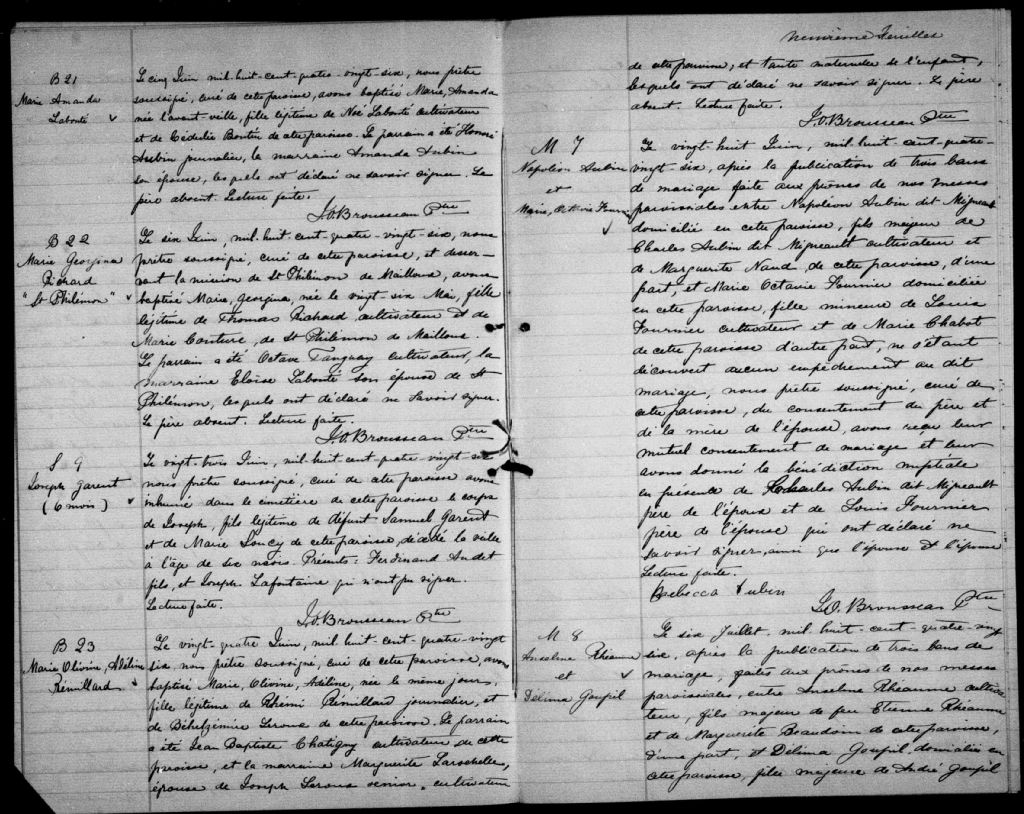 B 21
Marie Amanda
Labonté
Le cinq Juin, mil-huit-cent-quatre-vingt-six, nous prêtre
soussigné, curé de cette paroisse, avons baptisé Marie, Amanda
née l'avant-veille, fille légitime de Noé Labonté cultivateur
et de Cédulie Boutin de cette paroisse. Le parrain a été Honoré
Aubin journalier, la marraine Amanda Aubin
son épouse, lesquels ont déclaré ne savoir signer. Le
père absent. Lecture faite.
J.O. Brousseau Ptre
B 22
Marie Georgina
Richard
"St Philémon"
Le six Juin, mil-huit-cent-quatre-vingt-six, nous
prêtre soussigné, curé de cette paroisse, et desser-
vant la mission de St Philémon de Mailloux, avons
baptisé Marie, Georgina, née le vingt-six Mai, fille
légitime de Thomas Richard, cultivateur et de
Marie Couture, de St Philémon de Mailloux.
Le parrain a été Octave Tanguay cultivateur, la
marraine Eloïse Labonté son épouse de St
Philémon, lesquels ont déclaré ne savoir signer.
Le père absent. Lecture faite.
J.O. Brousseau Ptre
S 9
Joseph Garent
(6 mois)
Le vingt-trois Juin, mil-huit cent quatre-vingt-six
nous prêtre soussigné, curé de cette paroisse avons
inhumé dans le cimetière de cette paroisse le corps
de Joseph, fils légitime de défunt Samuel Garent
et de Marie Soucy de cette paroisse, décédé la veille
à l'âge de six mois. Présents: Ferdinand Audet
fils, et Joseph Lafontaine qui n'ont pu signer.
Lecture faite.
J.O. Brousseau Ptre
B 23
Marie Olivine, Adéline
Rémillard
Le vingt-quatre Juin, mil huit-cent-quatre-vingt
six nous prêtre soussigné, curé de cette paroisse, avons
baptisé Marie, Olivine, Adéline, née le même jour,
fille légitime de Rhémi Rémillard journalier, et
de Leroux de cette paroisse. Le parrain
a été Jean Baptiste Chatigny cultivateur de cette
paroisse, et la marraine Marguerite Larochelle,
épouse de Joseph Leroux senior, cultivateur
Feuillet
de cette paroisse, et tante maternelle de l'enfant,
lesquels ont déclaré ne savoir signer. Le père
absent. Lecture faite.
J.O. Brousseau Ptre
M 7
Napoléon Aubin
et
Marie, Octavie Fournier
Le vingt-huit Juin, mil-huit-cent-quatre-
vingt-six, après la publication de trois bans
de mariage faite aux prônes de nos messes
paroissiales entre Napoléon Aubin dit Migneault
domicilié en cette paroisse, fils majeur de
Charles Aubin dit Migneault cultivateur et
de Marguerite Naud, de cette paroisse, d'une
part, et Marie Octavie Fournier domiciliée
en cette paroisse, fille mineure de Louis
Fournier cultivateur et de Marie Chabot
de cette paroisse d'autre part, ne s'étant
découvert aucun empêchement au dit
mariage, nous prêtre soussigné, curé de
cette paroisse, du consentement du père et
de la mère de l'épouse, avons reçu leur
mutuel consentement de mariage et leur
avons donné la bénédiction nuptiale
en présence de Charles Aubin dit Migneault
père de l'époux et de Louis Fournier
père de l'épouse qui ont déclaré ne
savoir signer, ainsi que l'époux & l'épouse
Lecture faite.
Rebecca Aubin
J.O. Brousseau Ptre
M 8
Anselme Rhéaume
et
Délima Goupil
Le six Juillet, mil huit-cent-quatre-vingt
six, après la publication de trois bans de
mariage, faites aux prônes de nos messes
paroissiales, entre Anselme Rhéaume cultiva-
teur, fils majeur de feu Etienne Rhéaume
et de Marguerite Beaudoin de cette paroisse,
d'une part, et Délima Goupil, domiciliée en
cette paroisse, fille majeure de André Goupil